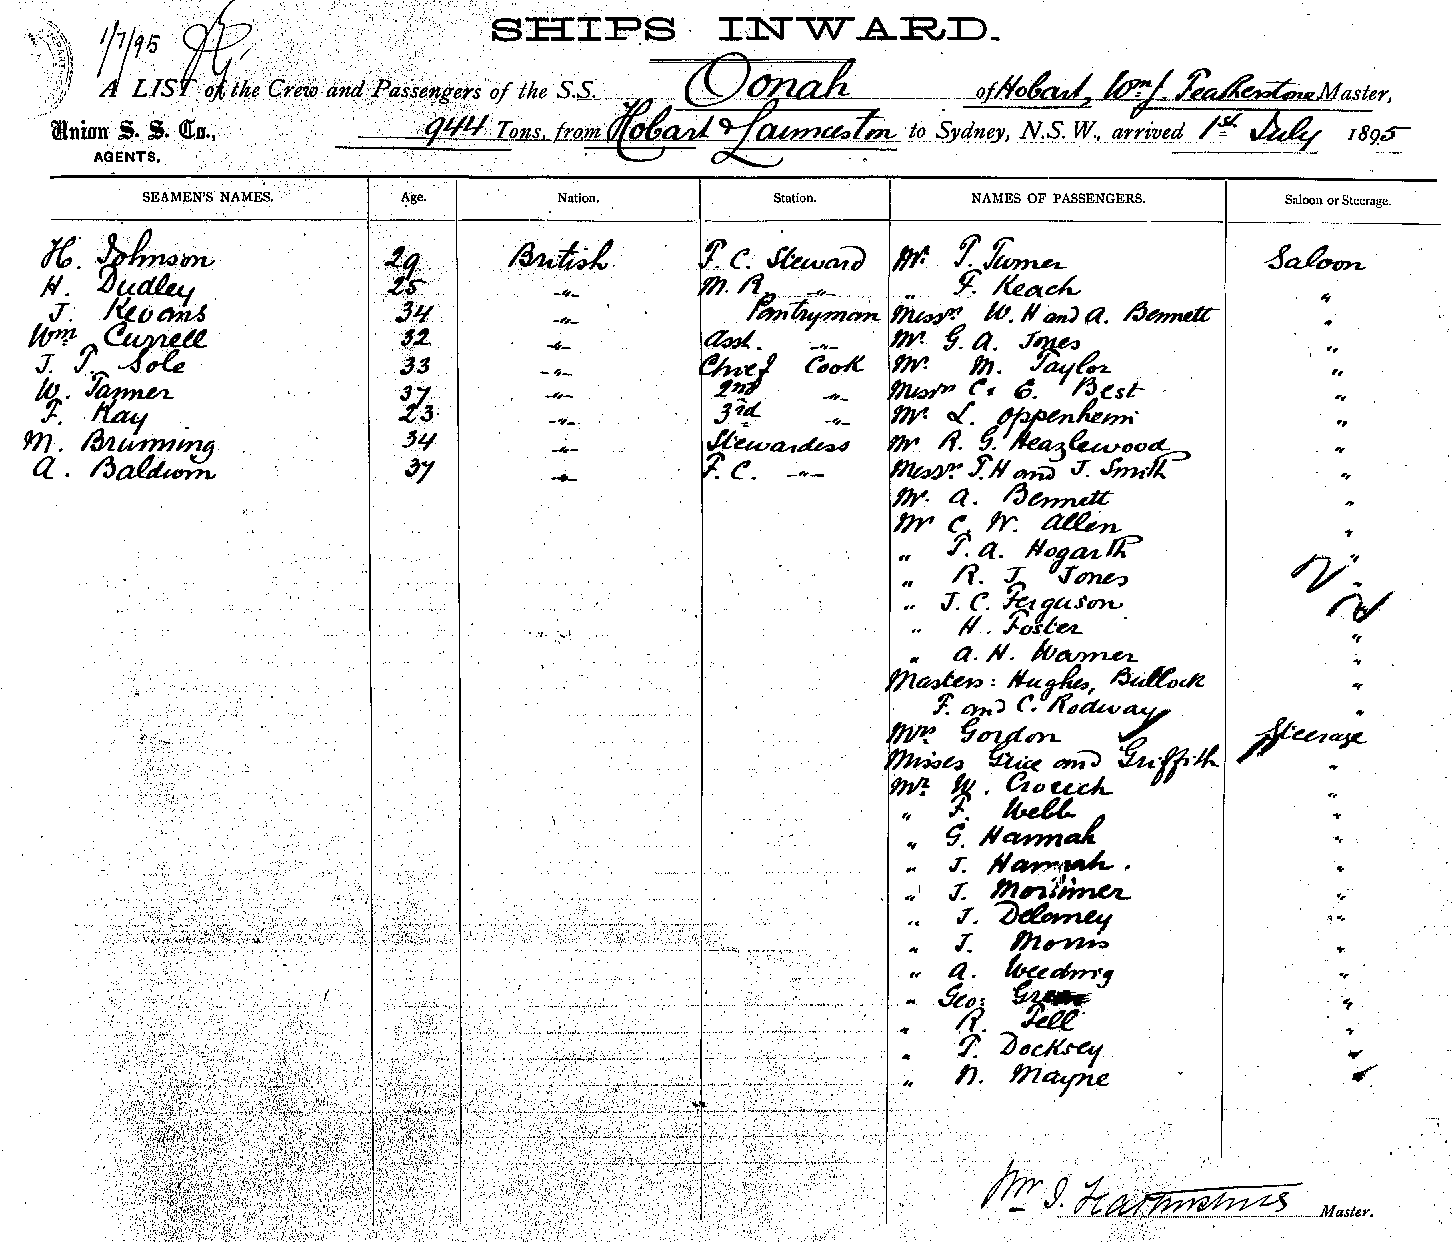 SHIPS INWARD.
1/7/95
A LIST of the Crew and Passengers of the S.S. Oonah of Hobart, Wm J. Featherstone Master,
Union S. S. Co.,
AGENTS.
944 Tons, from Hobart & Launceston to Sydney, N.S.W., arrived 1st July 1895
SEAMEN'S NAMES. Age. Nation. Station. NAMES OF PASSENGERS. Saloon or Steerage.
H. Johnson 29 British F. C. Steward Mr. T. Turner Saloon
H. Dudley 25 -"- M. R. -"- " F. Keach "
J. Kevans 34 -"- Pantryman Messrs W. H and A. Bennett "
Wm Currell 32 -"- Asst. -"- Mr. G. A. Jones "
J. T. Sole 33 -"- Chief Cook Mr. M. Taylor "
W. Tanner 37 -"- 2nd -"- Messrs C. & E. Best "
F. Kay 23 -"- 3rd -"- Mr. L. Oppenheim "
M. Brunning 34 -"- Stewardess Mr R. G. Heazlewood "
A. Baldwin 37 -"- F. C. -"- Messrs T. H and J. Smith "
Mr. A. Bennett "
Mr C. W. Allen "
" T. A. Hogarth "
" R. J. Jones "
" J. C. Ferguson
" H. Foster "
" A. H. Warner "
Masters: Hughes, Bullock "
F. and C. Rodway "
Mrs Gordon Steerage
Misses Grice and Griffith "
Mr. W. Crouch "
" F. Webb "
" G. Hannah "
" J. Hannah. "
" J. Mortimer "
" J. Delaney "
" J. Morris "
" A. Weedwig "
" Geo: "
" R. Fell "
" T. Docksey "
" N. Mayne "
Wm J. Featherstone Master.